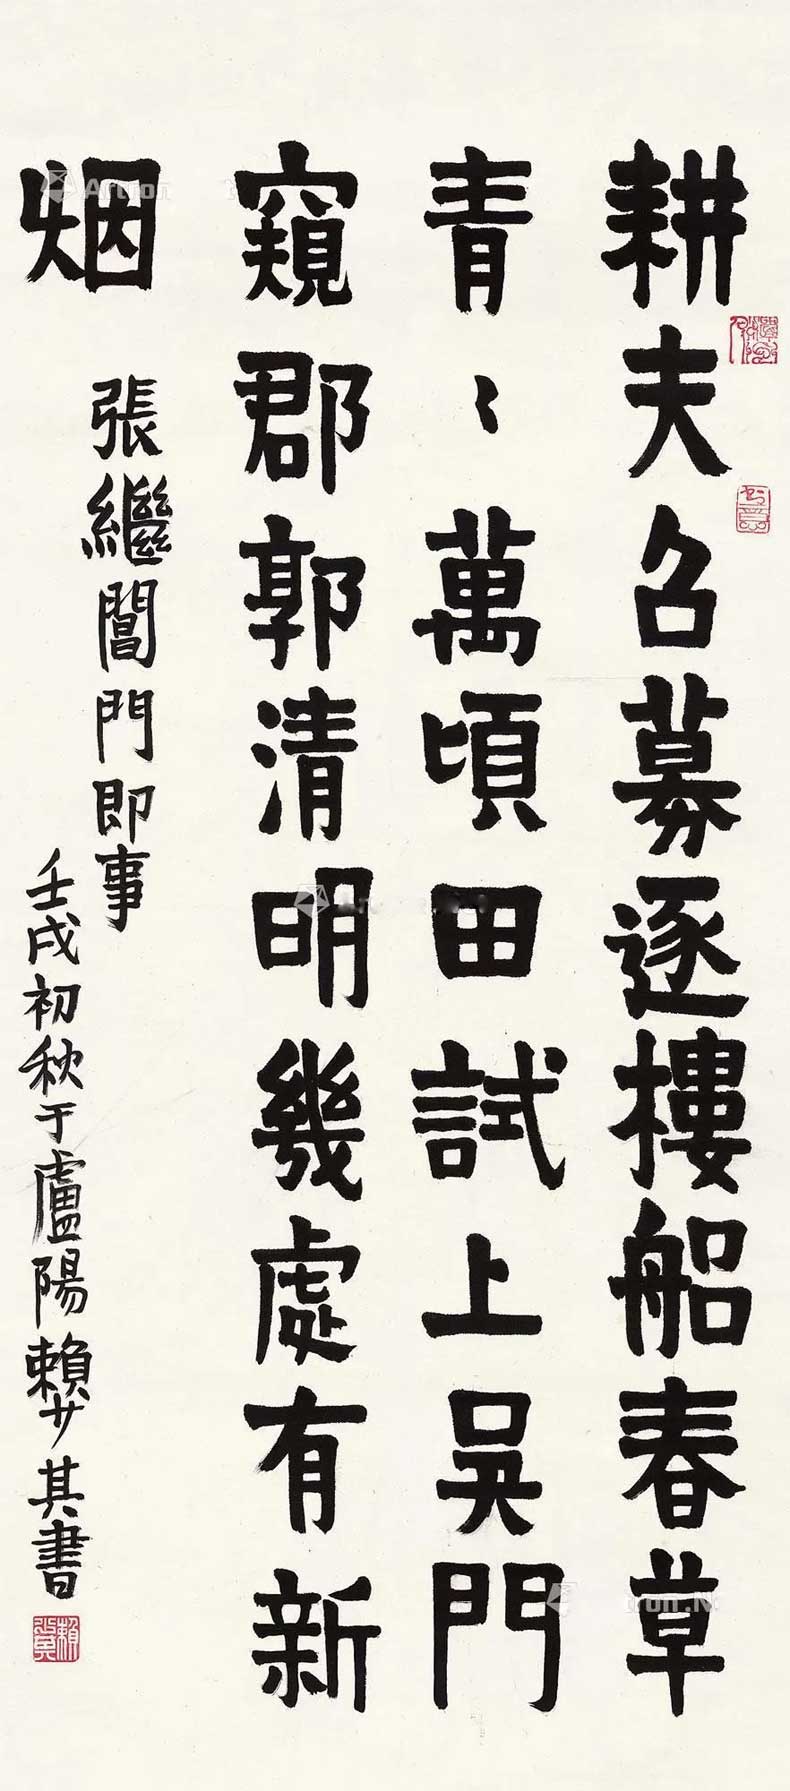 耕夫召募逐樓船春草
青〻萬頃田試上吳門
窺郡郭清明幾處有新
烟
張繼閶門即事
壬戌初秋于廬陽賴少其書